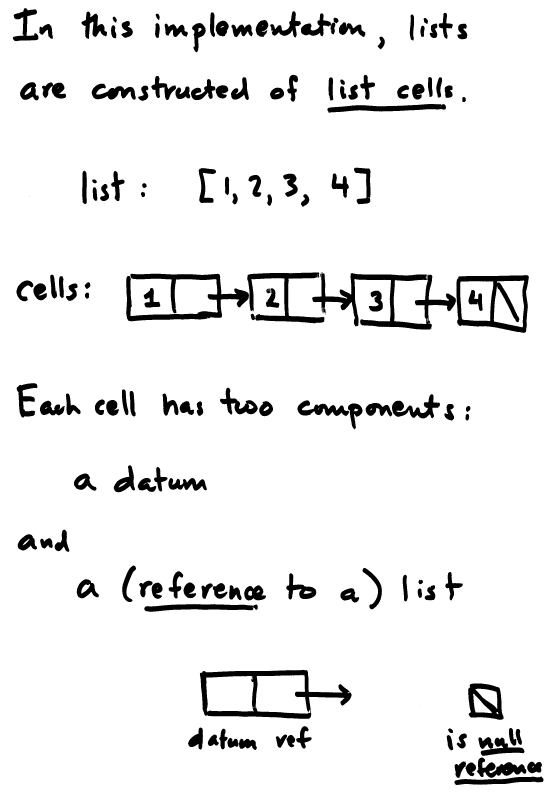 In this implementation, lists
are constructed of list cells.
list: [1, 2, 3, 4]
cells: 1 2 3 4
Each cell has two components:
a datum
and
a (reference to a) list
datum ref
is null
reference